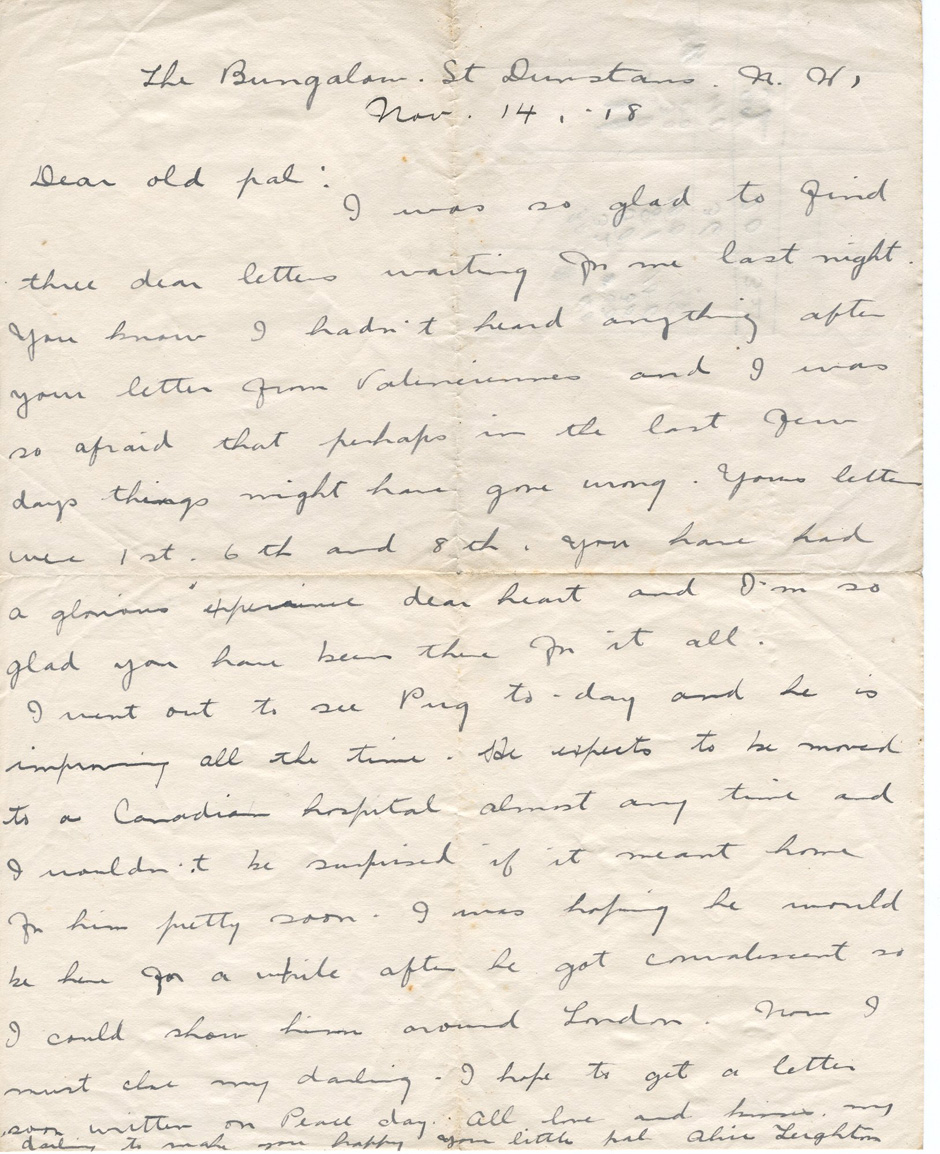 The Bungalow. St Dunstans. N. W,
Nov. 14, -18
Dear old pal:
I was so glad to find
three dear letters waiting for me last night.
You know I hadn't heard anything after
your letter from Valenciennes and I was
so afraid that perhaps in the last few
days things might have gone wrong. Yours letter
were 1st. 6th and 8th. You have had
a glorious experience dear heart and I'm so
glad you have been there for it all.
I went out to see Pug to-day and he is
improving all the time. He expects to be moved
to a Canadian hospital almost any time and
I wouldn't be surprised if it meant home
for him pretty soon. I was hoping he would
be here for a while after he got convalescent so
I could show him around London. Now I
must close my darling. I hope to get a letter
soon written on Peace day. All love and kisses, my
darling to make you happy your little pal Alice Leighton